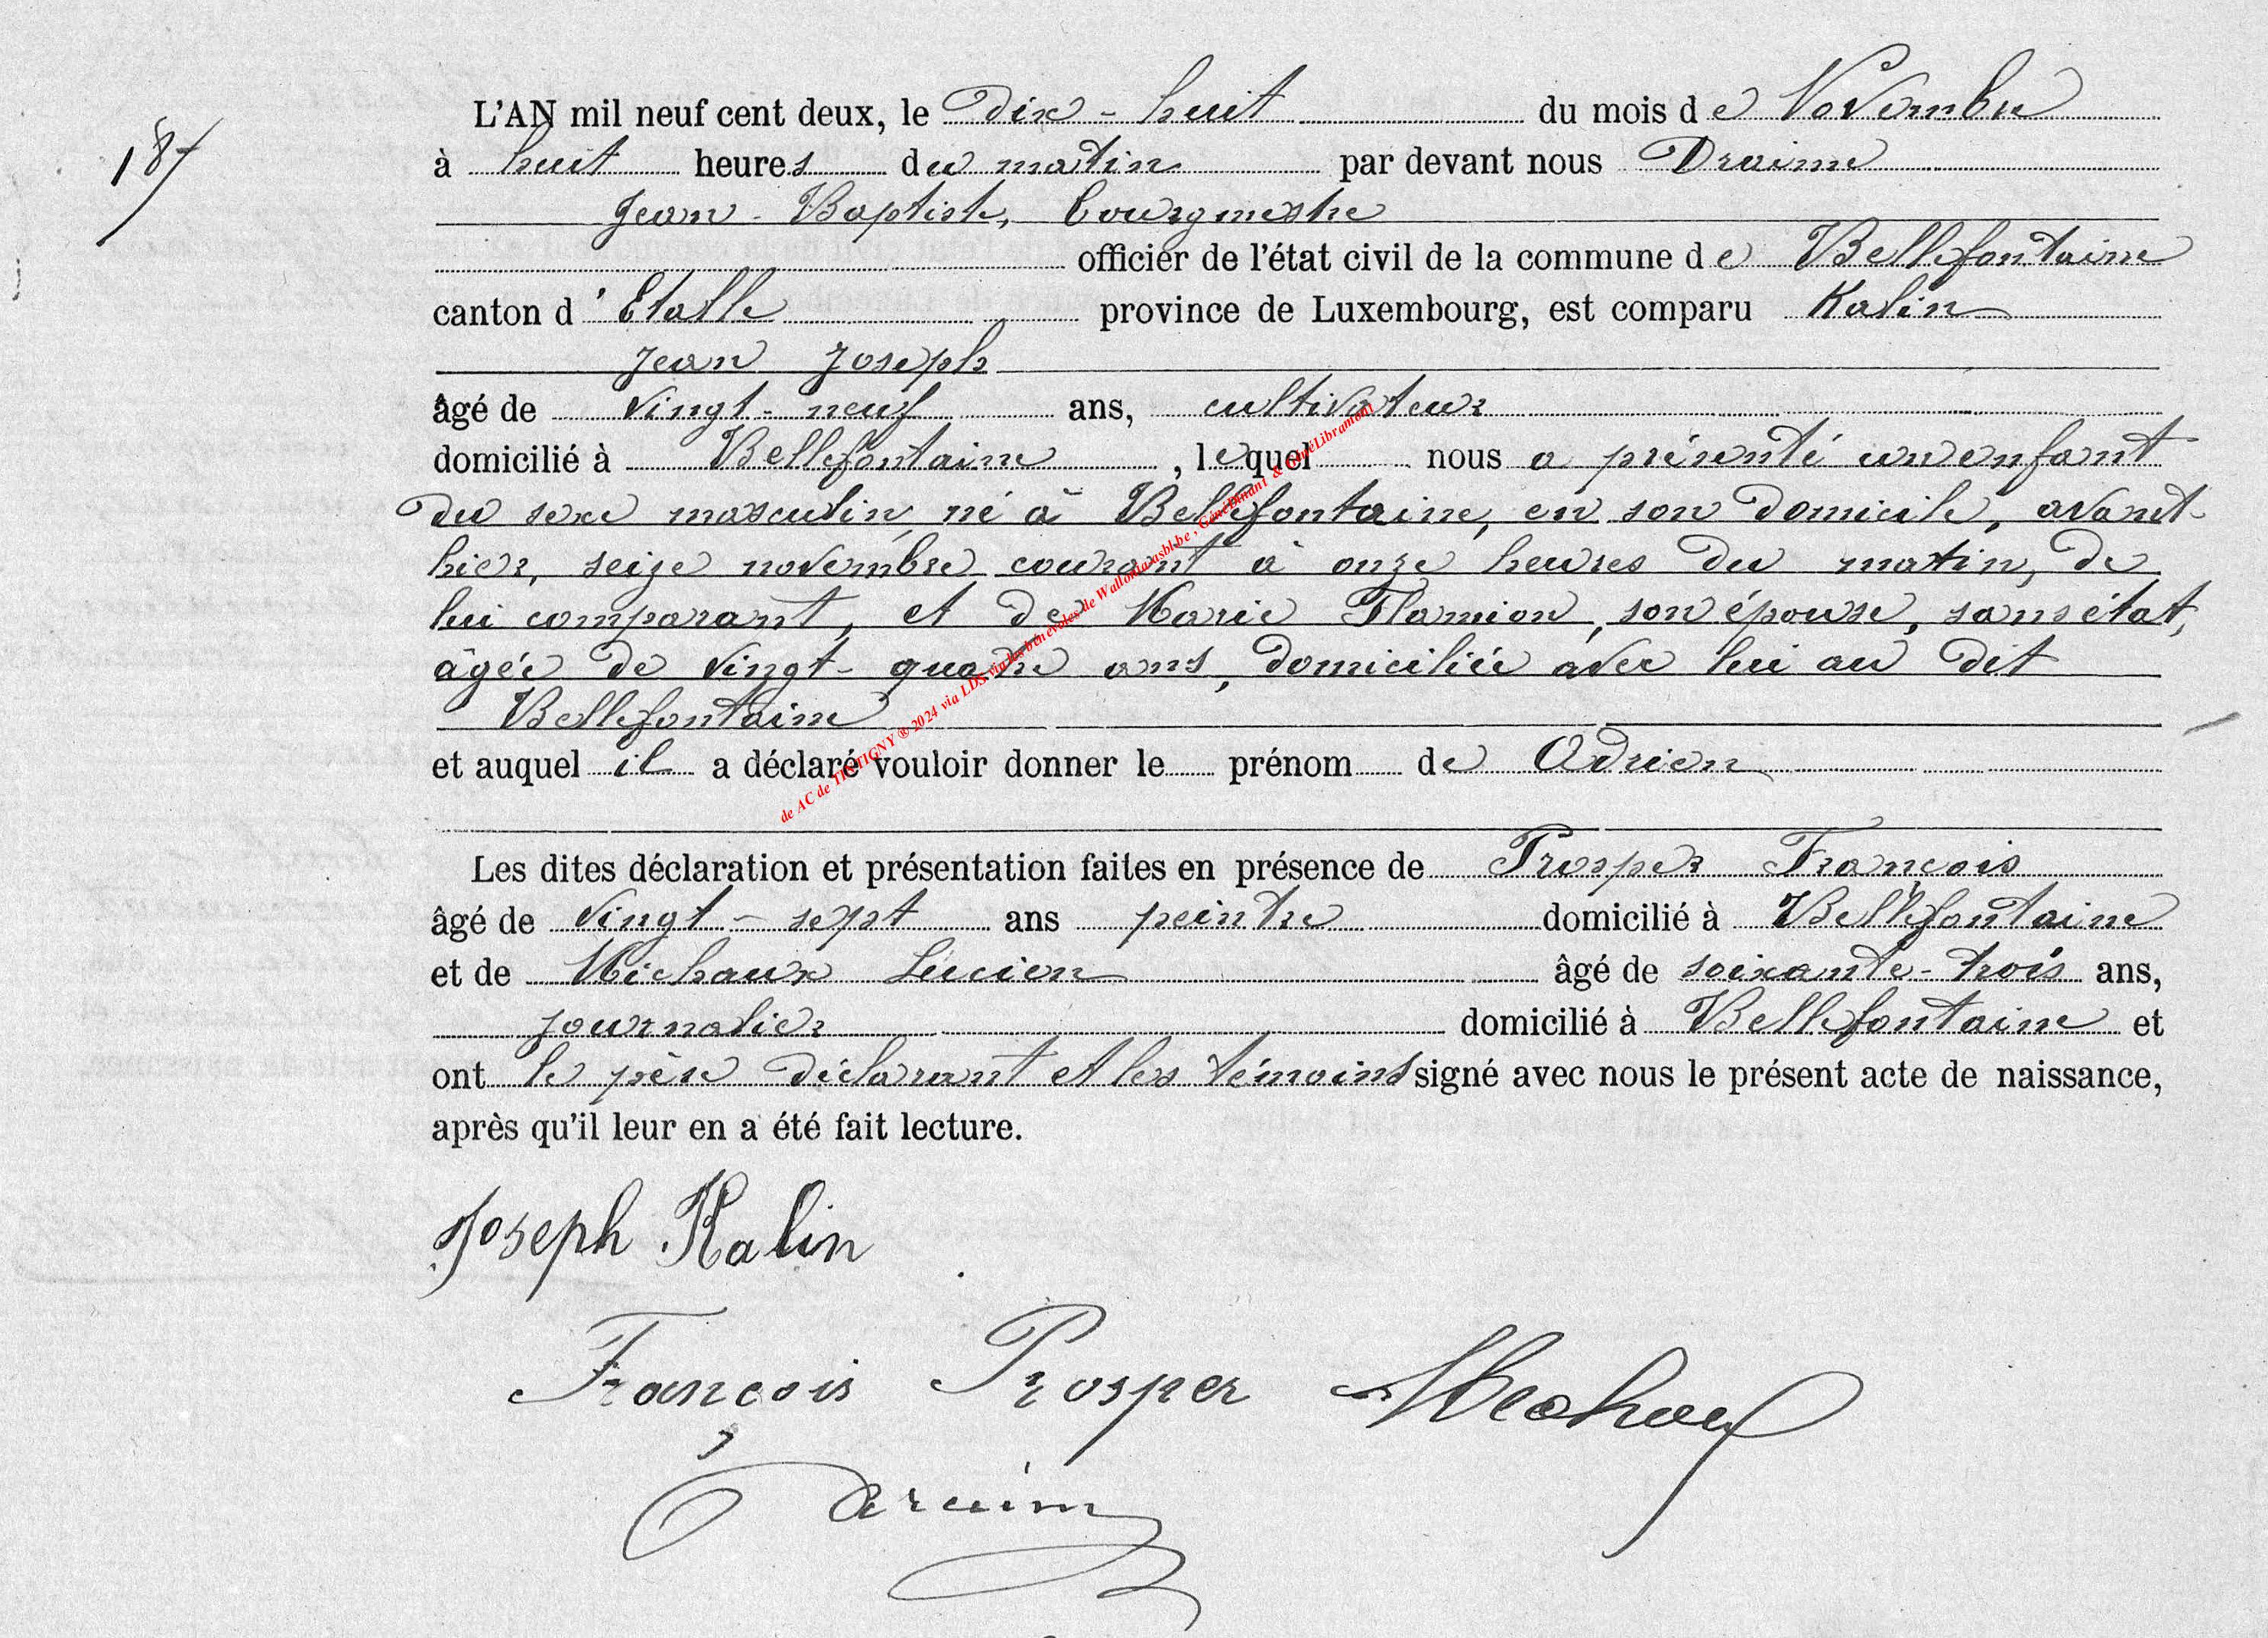 L'AN mil neuf cent deux, le dix-huit du mois de Novembre
187
à huit heures du matin par devant nous Draime
Jean-Baptiste, bourgmestre
officier de l'état civil de la commune de Bellefontaine
canton d'Etalle province de Luxembourg, est comparu Kalin
Jean Joseph
âgé de vingt-neuf ans, cultivateur
domicilié à Bellefontaine, lequel nous a présenté un enfant
du sexe masculin, né à Bellefontaine, en son domicile, avant-
hier, seize novembre courant à onze heures du matin, de
lui comparant, et de Marie Flamion, son épouse, sans état,
âgée de vingt-quatre ans, domiciliée avec lui au dit
Bellefontaine
et auquel il a déclaré vouloir donner le prénom de Adrien
Les dites déclaration et présentation faites en présence de Prosper François
âgé de vingt-sept ans peintre domicilié à Bellefontaine
et de Michaux Lucien âgé de soixante-trois ans,
journalier domicilié à Bellefontaine et
ont le père déclarant et les témoins signé avec nous le présent acte de naissance,
après qu'il leur en a été fait lecture.
Joseph Kalin
François Prosper
Draime
de AC de TINTIGNY ® 2024 via LDS, via les bénévoles de Wallonia asbl.be , GénéDinant & GénéLibramont